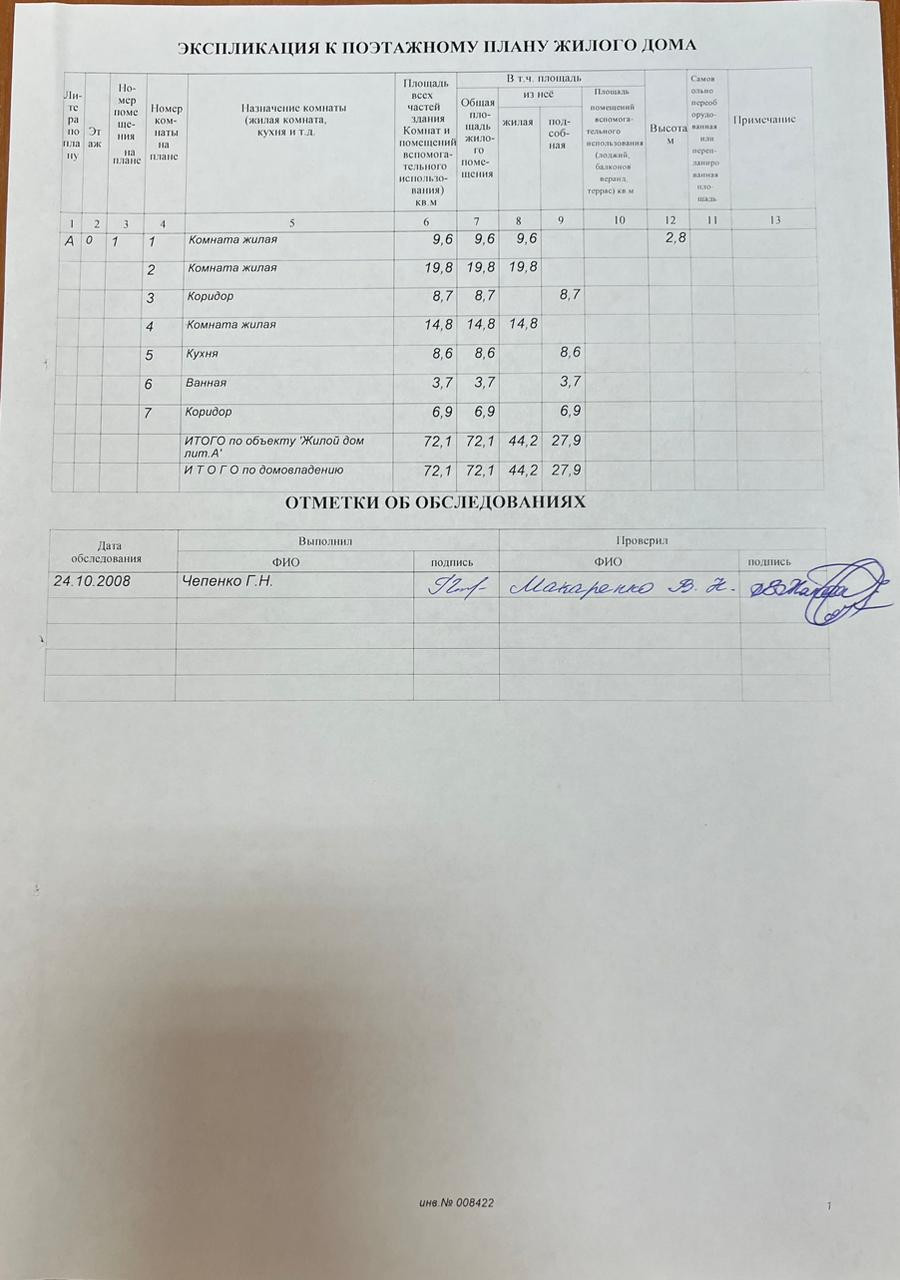 ЭКСПЛИКАЦИЯ К ПОЭТАЖНОМУ ПЛАНУ ЖИЛОГО ДОМА
Ли-те ра по пла ну | Эт аж | Но-мер поме ще-ния на плане | Номер ком-наты на плане | Назначение комнаты (жилая комната, кухня и т.д. | Площадь всех частей здания Комнат и помещений вспомога-тельного использо-вания) кв.м | В т.ч. площадь | Общая пло-щадь жило-го поме-щения | из неё | жилая | под-соб-ная | Площадь помещений вспомога-тельного использования (лоджий, балконов веранд, террас) кв.м | Высота м | Самов ольно переоб орудо-ванная или переп-ланиро ванная пло-щадь | Примечание
1 2 3 4 5 6 7 8 9 10 12 11 13
А 0 1 1 Комната жилая 9,6 9,6 9,6 2,8
2 Комната жилая 19,8 19,8 19,8
3 Коридор 8,7 8,7 8,7
4 Комната жилая 14,8 14,8 14,8
5 Кухня 8,6 8,6 8,6
6 Ванная 3,7 3,7 3,7
7 Коридор 6,9 6,9 6,9
ИТОГО по объекту 'Жилой дом
лит.А' 72,1 72,1 44,2 27,9
И Т О Г О по домовладению 72,1 72,1 44,2 27,9
ОТМЕТКИ ОБ ОБСЛЕДОВАНИЯХ
Дата обследования | Выполнил | Проверил
ФИО | подпись | ФИО | подпись
24.10.2008 Чепенко Г.Н. Макаренко В. Н.
инв.№ 008422
1